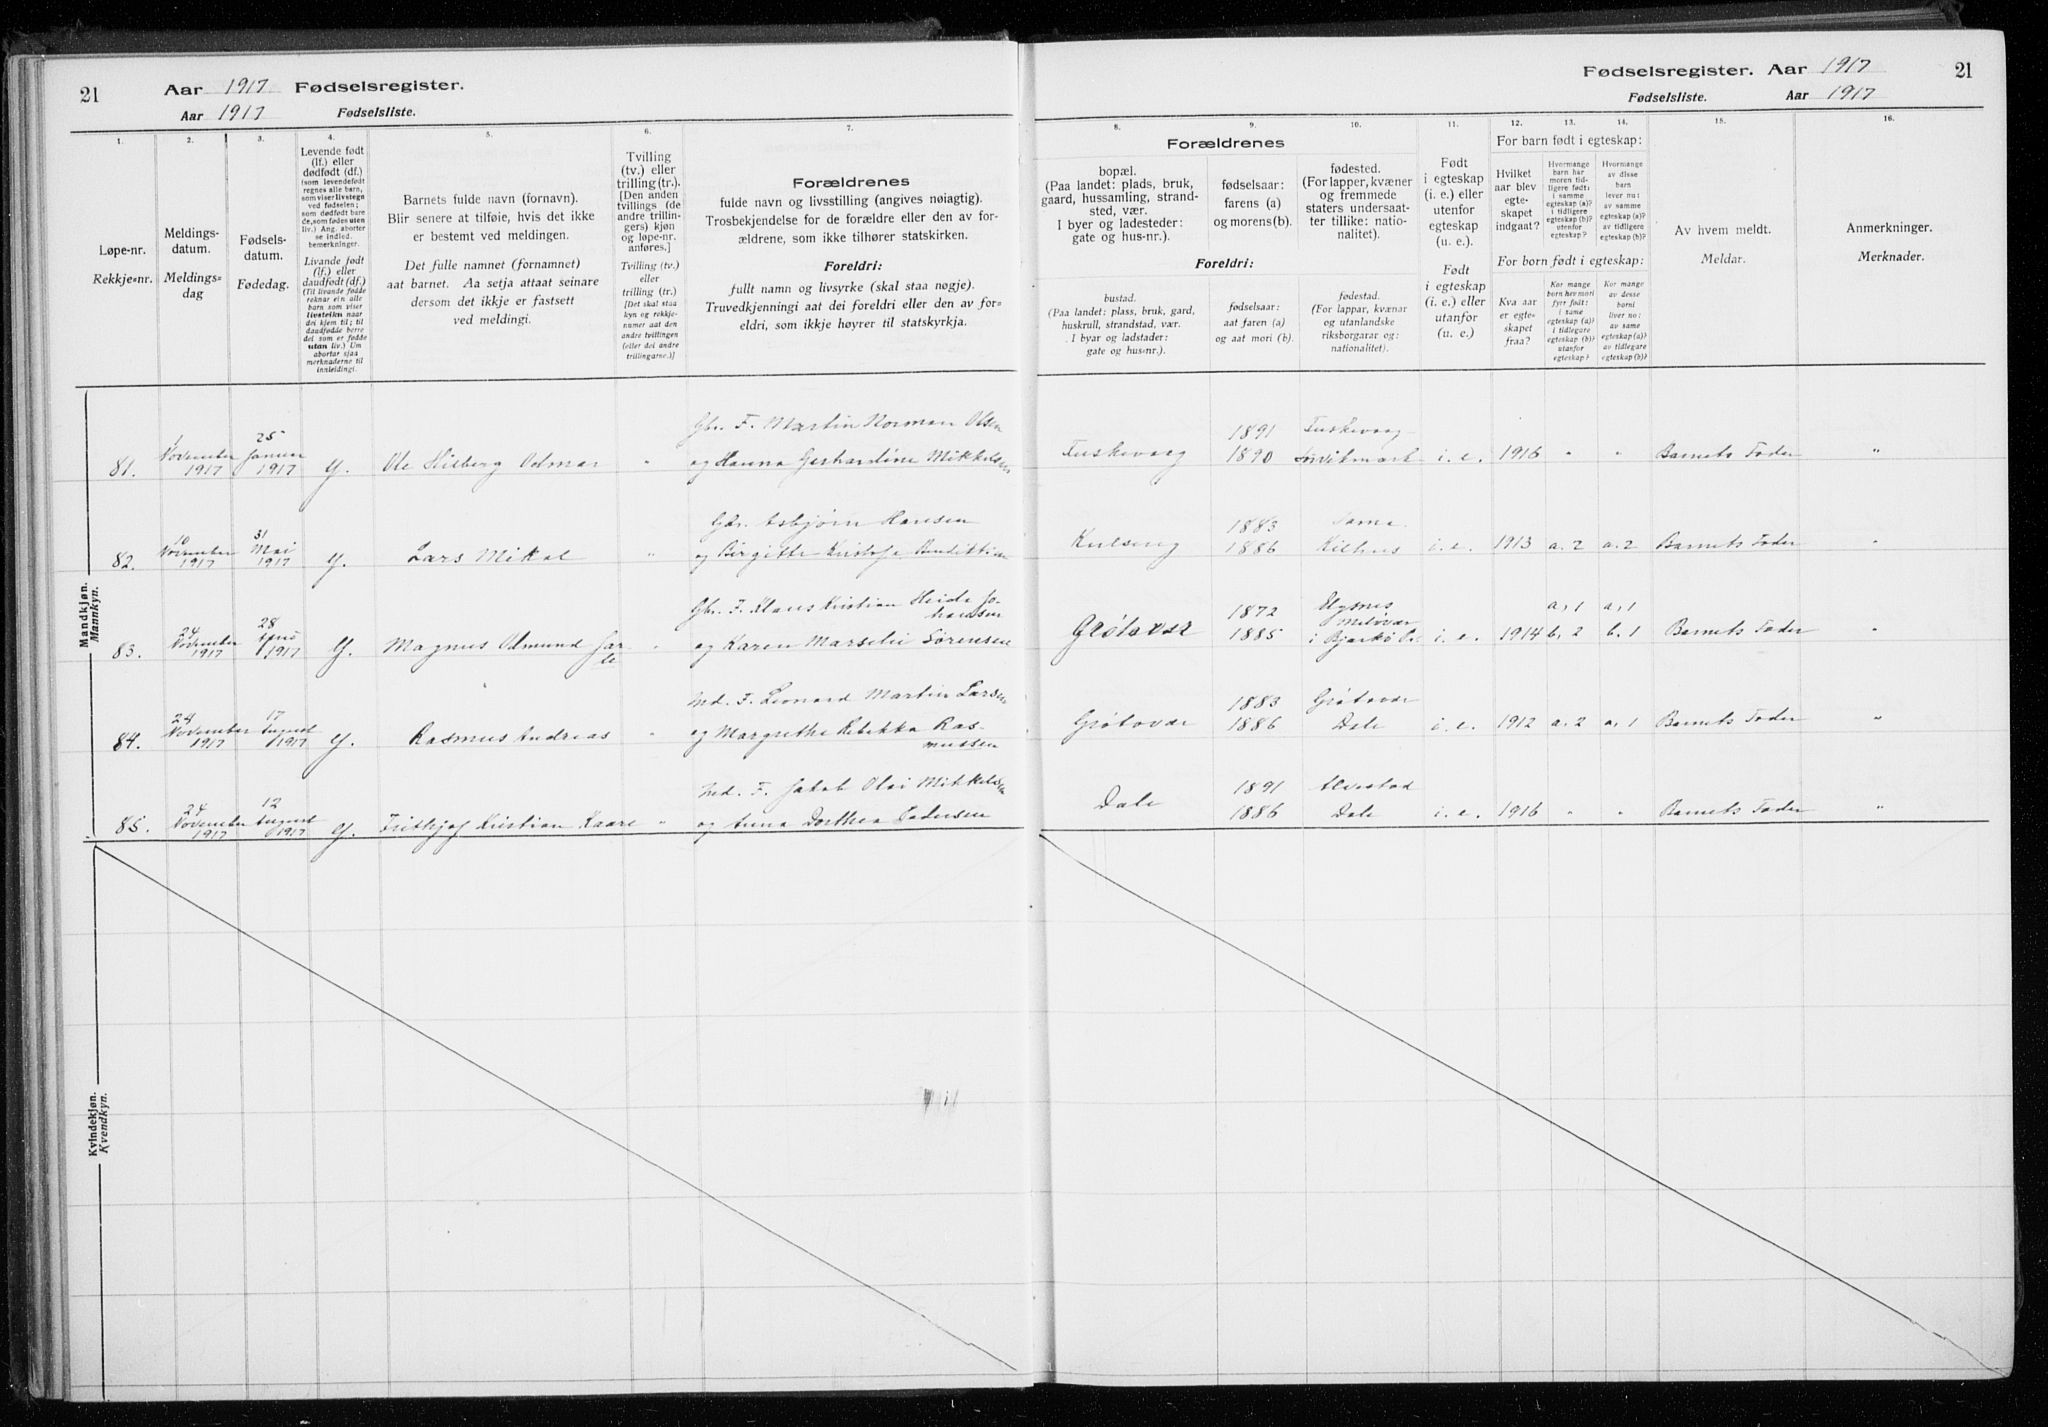 21
Aar 1917 Fødselsregister.
Aar 1917 Fødselsliste.
1.
2.
3.
4.
5.
6.
7.
Løpe-nr.
Rekkje=nr.
Meldings-
datum.
Meldings=
dag
Fødsels-
datum.
Fødedag.
Levende født
(lf.) eller
dødfødt (df.)
(som levendefødt
regnes alle barn,
som viser livstegn
ved fødselen;
som dødfødt bare
de, som fødes uten
liv.) Ang. aborter
se indled.
bemerkninger.
Livande født
(lf.) eller
daudfødt (df.)
(Til livande fødde
reknar ein alle
born som viser
livsteikn naar
dei kjem til; til
daudfødde berre
dei som er fødde
utan liv.) Um
abortar sjaa
merknaderne til
innleidingi.
Barnets fulde navn (fornavn).
Blir senere at tilføie, hvis det ikke
er bestemt ved meldingen.
Det fulle namnet (fornamnet)
aat barnet. Aa setja attaat seinare
dersom det ikkje er fastsett
ved meldingi.
Tvilling
(tv.) eller
trilling (tr.).
[Den anden
tvillings (de
andre trillin-
gers) kjøn
og løpe-nr.
anføres.]
Tvilling (tv.)
eller
trilling (tr.)
[Det skal staa
kyn og rekkje-
numer aat den
andre tvillingen
(eller dei andre
trillingarne.)]
Forældrenes
fulde navn og livsstilling (angives nøiagtig).
Trosbekjendelse for de forældre eller den av for-
ældrene, som ikke tilhører statskirken.
Foreldri:
fullt namn og livsyrke (skal staa nøgje).
Truvedkjenningi aat dei foreldri eller den av for=
eldri, som ikkje høyrer til statskyrkja.
Mandkjøn.
Mannkyn.
81.
1 November 1917
25 Januar 1917
Ole Hilberg Odmar
"
Gbr. F. Martin Norman Olsen
og Hanna Gerhardine Mikkelsen
82.
10 November 1917
31 Mai 1917
Lars Mikal
"
Gbr. Asbjørn Hansen
og Birgitte Kristofa Bendiktsen
83.
24 November 1917
28 1917
Magnus Odmund Jar-
le
"
Gbr. F. Klaus Kristian Heide Jo-
hansen
og Karen Marselie Sørensen
84.
24 November 1917
17 August 1917
Rasmus Andreas
"
Ind. F. Leonard Martin Larsen
og Margrethe Rebekka Ras-
mussen
85.
24 November 1917
12 August 1917
Frithjof Kristian Kaare
"
Ind. F. Jakob Olai Mikkelsen
og Anna Dorthea Pedersen
Kvindekjøn.
Kvendkyn.
Fødselsregister. Aar 1917
21
Fødselsliste. Aar 1917
8.
9.
10.
11.
12.
13.
14.
15.
16.
Forældrenes
bopæl.
(Paa landet: plads, bruk,
gaard, hussamling, strand-
sted, vær.
I byer og ladesteder:
gate og hus-nr.).
fødselsaar:
farens (a)
og morens (b).
fødested.
(For lapper, kvæner
og fremmede
staters undersaat-
ter tillike: natio-
nalitet).
Foreldri:
bustad.
(Paa landet: plass, bruk, gard,
huskrull, strandstad, vær.
I byar og ladstader:
gate og hus=nr.).
fødselsaar:
aat faren (a)
og aat mori (b).
fødestad.
(For lappar, kvænar
og utanlandske
riksborgarar og:
nationalitet).
Født
i egteskap
(i. e.) eller
utenfor
egteskap
(u. e.).
Født
i egteskap
(i. e.) eller
utanfor
(u. e.).
For barn født i egteskap:
Hvilket
aar blev
egte-
skapet
indgaat?
Hvormange
barn har
moren tid-
ligere født:
i samme
egteskap (a)?
i tidligere
egteskap (b)?
utenfor
egteskap?
Hvormange
av disse
barn
lever nu:
av samme
egteskap (a)?
av tidligere
egteskap (b)?
For born født i egteskap:
Kva aar
er egte-
skapet
fraa?
Kor mange
born hev mori
fyrr født:
i same
egteskap (a)?
i tidlegare
egteskap (b)?
utanfor
egteskap?
Kor mange
av desse
borni
liver no:
av same
egteskap (a)?
av tidlegare
egteskap (b)?
Av hvem meldt.
Meldar.
Anmerkninger.
Merknader.
Tuskevaag
1891
1890
Tuskevaag
i. e.
1916
"
"
Barnets Fader
"
Kulseng
1883
1886
Kilhus
i. e.
1913
a. 2
a. 2
Barnets Fader
"
Grøtavær
1872
1885
Elgsnes
Meløvær
i Bjarkø
i. e.
1914
a, 1
b. 2
a, 1
b. 1
Barnets Fader
"
Grøtavær
1883
1886
Grøtavær
Dale
i. e.
1912
a. 2
a. 1
Barnets Fader
"
Dale
1891
1886
Alvestad
Dale
i. e.
1916
"
"
Barnets Fader
"